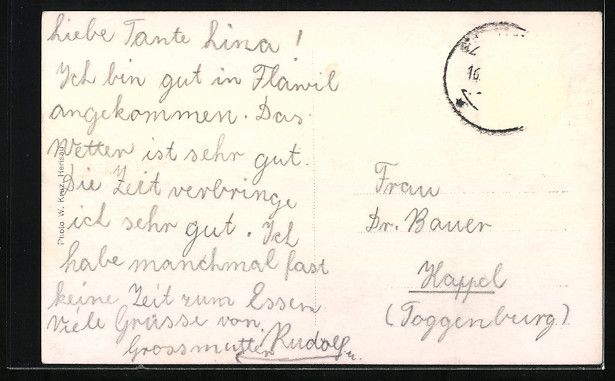 Liebe Tante Lina!
Ich bin gut in Flawil
angekommen. Das
Wetter ist sehr gut.
Die Zeit verbringe
ich sehr gut. Ich
habe manchmal fast
keine Zeit zum Essen.
Viele Grüsse von
Grossmutter u. Rudolf
Frau
Dr. Bauer
Kappel
(Toggenburg)
Photo W. Kunz, Herisau